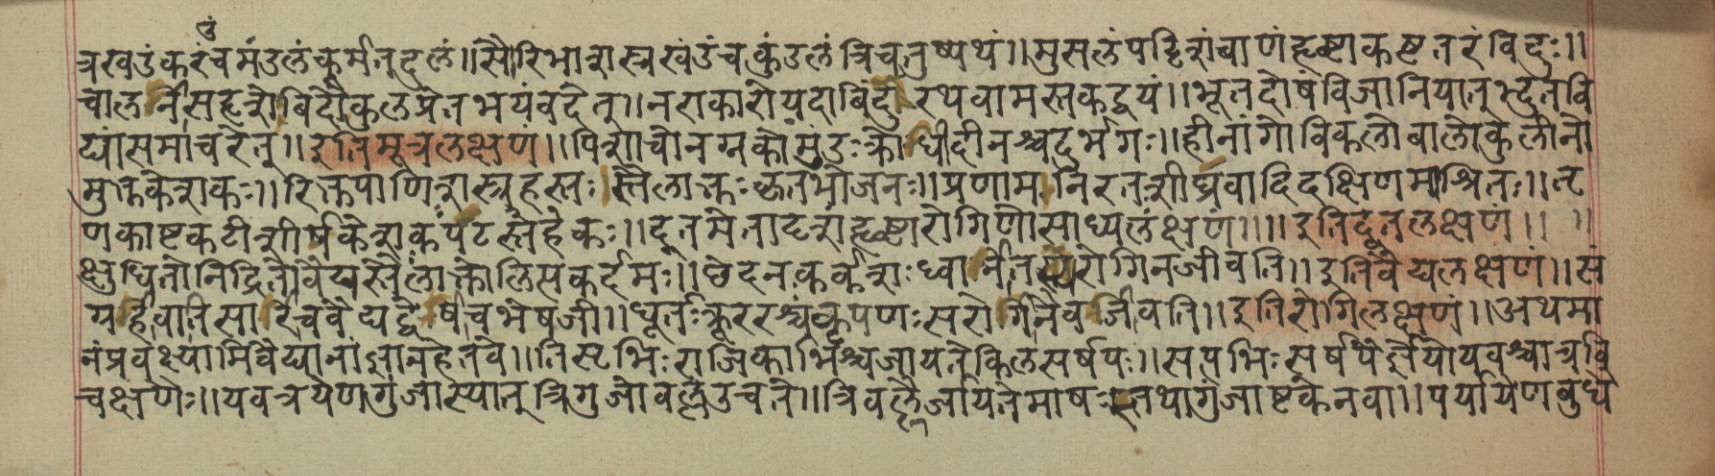 त्रखडंकरंचमंडलंकूर्मतुदलं॥सौरिभाशस्त्रखंडंचकुंडलंत्रिचतुष्पथं॥मुसलंपट्टिशंबाणंदृष्टाकष्टतरंविदुः॥
चालनीसदृशेविंदौकुलप्रेतभयंवदेत्॥नराकारोयदाबिंदुरथवामस्तकद्वयं॥भूतदोषंविजानियात्भूतवि
द्यांसमाचरेत्॥इतिमूत्रलक्षणं॥पिशाचोनग्नकोमुंडःक्रोधीदीनश्चदुर्भगः॥हीनांगोविकलोबालोकुलीनो
मुक्तकेशकः॥रिक्तपाणिशस्त्रहस्तःस्तैलाक्तःकृतभोजनः॥प्रणामनिरतःशीघ्रवादिदक्षिणमाश्रितः॥तृ
णकाष्टकटीशीर्षकेशकंपटस्नेहकः॥दूतमेतादृशंदृष्टारोगिणोसाध्यलंक्षणं॥॥इतिदूतलक्षणं॥॥
क्षुधितोनिद्रितोवैद्यस्तैलाक्तोलिप्तकर्दमः॥छेदनकर्कशःध्वानीतस्यरोगिनजीवति॥इतिवैद्यलक्षणं॥सं
ग्रहेवातिसारेचवैद्यद्वेषीचभेषजी॥धूर्तःक्रूररश्चकृपणःसरोगीनैवजीवति॥इतिरोगिलक्षणं॥अथमा
नंप्रवक्ष्यामिवैद्यानांज्ञानहेतवे॥तिसृभिःराजिकाभिश्चजायतेकिलसर्षपः॥सप्तभिःसर्षपैर्ज्ञेयोयवश्चात्रवि
चक्षणैः॥यवत्रयेणगुंजास्यात्त्रिगुंजोवल्लउच्चते॥त्रिवल्लैर्जायतेमाषस्तथागुंजाष्टकेनवा॥पर्यायेणबुधै